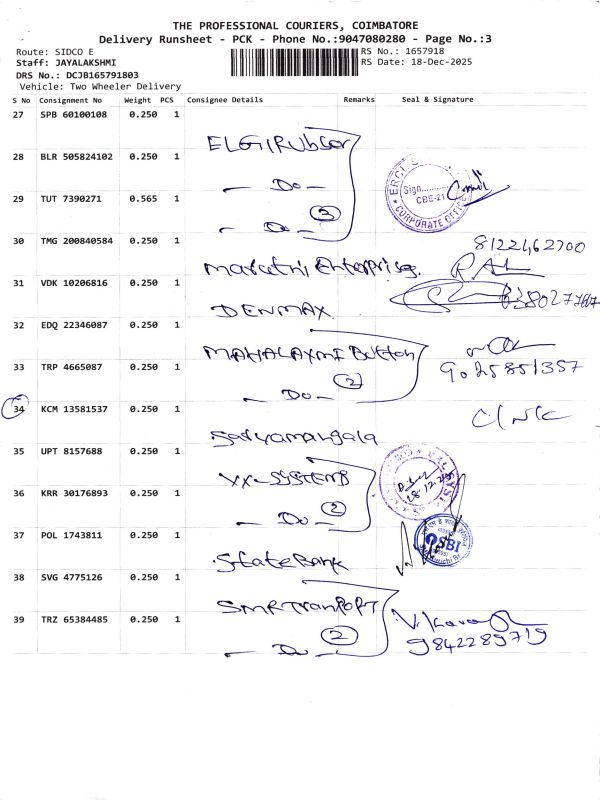 THE PROFESSIONAL COURIERS, COIMBATORE
Delivery Runsheet - PCK - Phone No.:9047080280 - Page No.:3
Route: SIDCO E
RS No.: 1657918
Staff: JAYALAKSHMI
RS Date: 18-Dec-2025
DRS No.: DCJB165791803
Vehicle: Two Wheeler Delivery
S No Consignment No Weight PCS Consignee Details Remarks Seal & Signature
27 SPB 60100108 0.250 1 ELGI Rubber
28 BLR 505824102 0.250 1 — Do —
Sign.......
CBE-21
CORPORATE OFFICE
29 TUT 7390271 0.565 1 — Do — 3
30 TMG 200840584 0.250 1 Maruthi Enterprises 8122462700
31 VDK 10206816 0.250 1 DENMAX
32 EDQ 22346087 0.250 1 MAHALAXMI Button
33 TRP 4665087 0.250 1 — Do — 2 9025851357
34 KCM 13581537 0.250 1 Satyamangala
35 UPT 8157688 0.250 1 VX-SYSTEMS
36 KRR 30176893 0.250 1 — Do — 2
37 POL 1743811 0.250 1 State Bank
SBI
38 SVG 4775126 0.250 1 SMR Tranport
39 TRZ 65384485 0.250 1 — Do — 2 9842289719